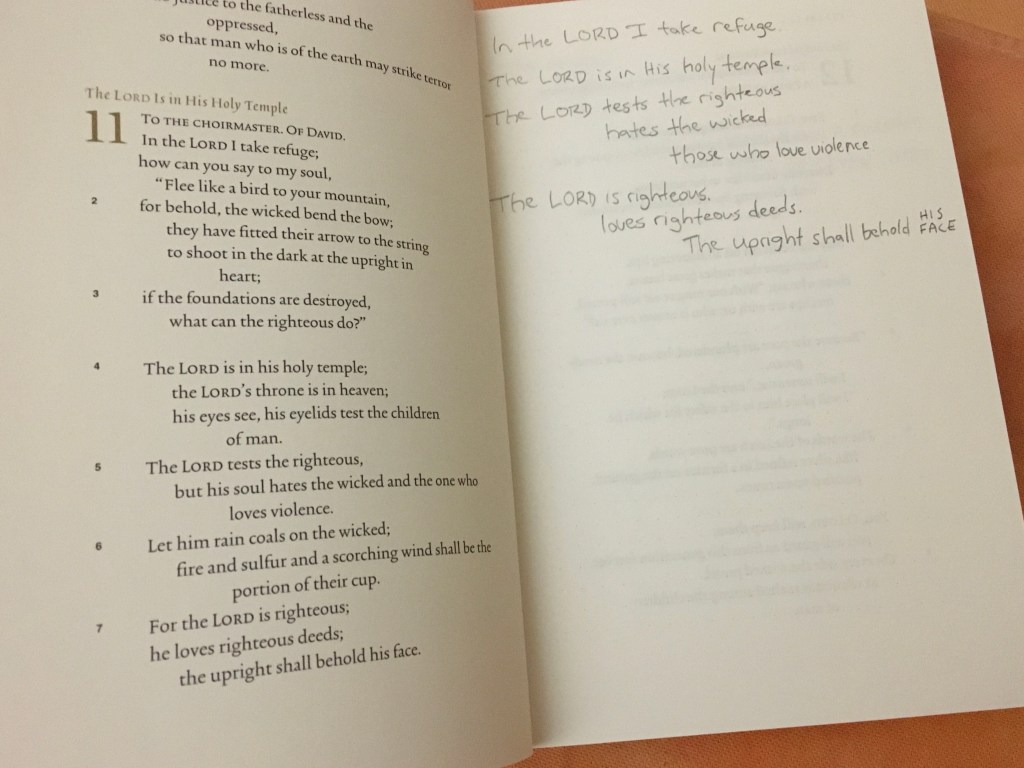 justice to the fatherless and the
oppressed,
so that man who is of the earth may strike terror
no more.
The LORD Is in His Holy Temple
11
TO THE CHOIRMASTER. OF DAVID.
In the LORD I take refuge;
how can you say to my soul,
“Flee like a bird to your mountain,
2 for behold, the wicked bend the bow;
they have fitted their arrow to the string
to shoot in the dark at the upright in
heart;
3 if the foundations are destroyed,
what can the righteous do?”
4 The LORD is in his holy temple;
the LORD’s throne is in heaven;
his eyes see, his eyelids test the children
of man.
5 The LORD tests the righteous,
but his soul hates the wicked and the one who
loves violence.
6 Let him rain coals on the wicked;
fire and sulfur and a scorching wind shall be the
portion of their cup.
7 For the LORD is righteous;
he loves righteous deeds;
the upright shall behold his face.
In the LORD I take refuge.
The LORD is in His holy temple.
The LORD tests the righteous
hates the wicked
those who love violence
The LORD is righteous.
loves righteous deeds.
The upright shall behold HIS
FACE